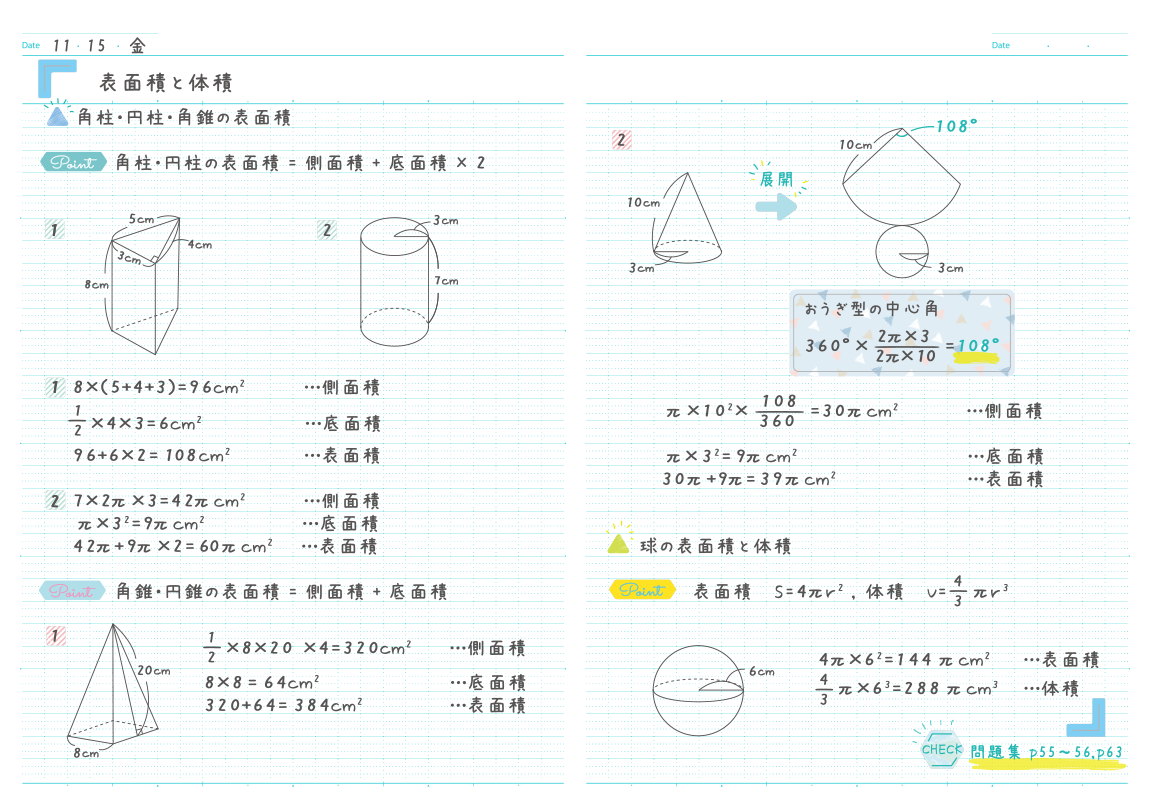 Date 11・15・金
表面積と体積
角柱・円柱・角錐の表面積
Point 角柱・円柱の表面積 = 側面積 + 底面積 × 2
1
5cm
4cm
3cm
8cm
2
3cm
7cm
1 8×(5+4+3)=96cm² …側面積
1/2 ×4×3=6cm² …底面積
96+6×2= 108cm² …表面積
2 7×2π ×3=42π cm² …側面積
π×3²=9π cm² …底面積
42π+9π ×2=60π cm² …表面積
Point 角錐・円錐の表面積 = 側面積 + 底面積
1
20cm
8cm
1/2 ×8×20 ×4=320cm² …側面積
8×8 = 64cm² …底面積
320+64= 384cm² …表面積
Date ・ ・
2
10cm
3cm
展開
108°
10cm
3cm
おうぎ型の中心角
360°× 2π×3/2π×10 =108°
π×10²× 108/360 =30π cm² …側面積
π×3²=9π cm² …底面積
30π+9π=39π cm² …表面積
球の表面積と体積
Point 表面積 S=4πr² , 体積 υ=4/3 πr³
6cm
4π×6²=144 π cm² …表面積
4/3 π×6³=288 π cm³ …体積
CHECK 問題集 p55～56,p63